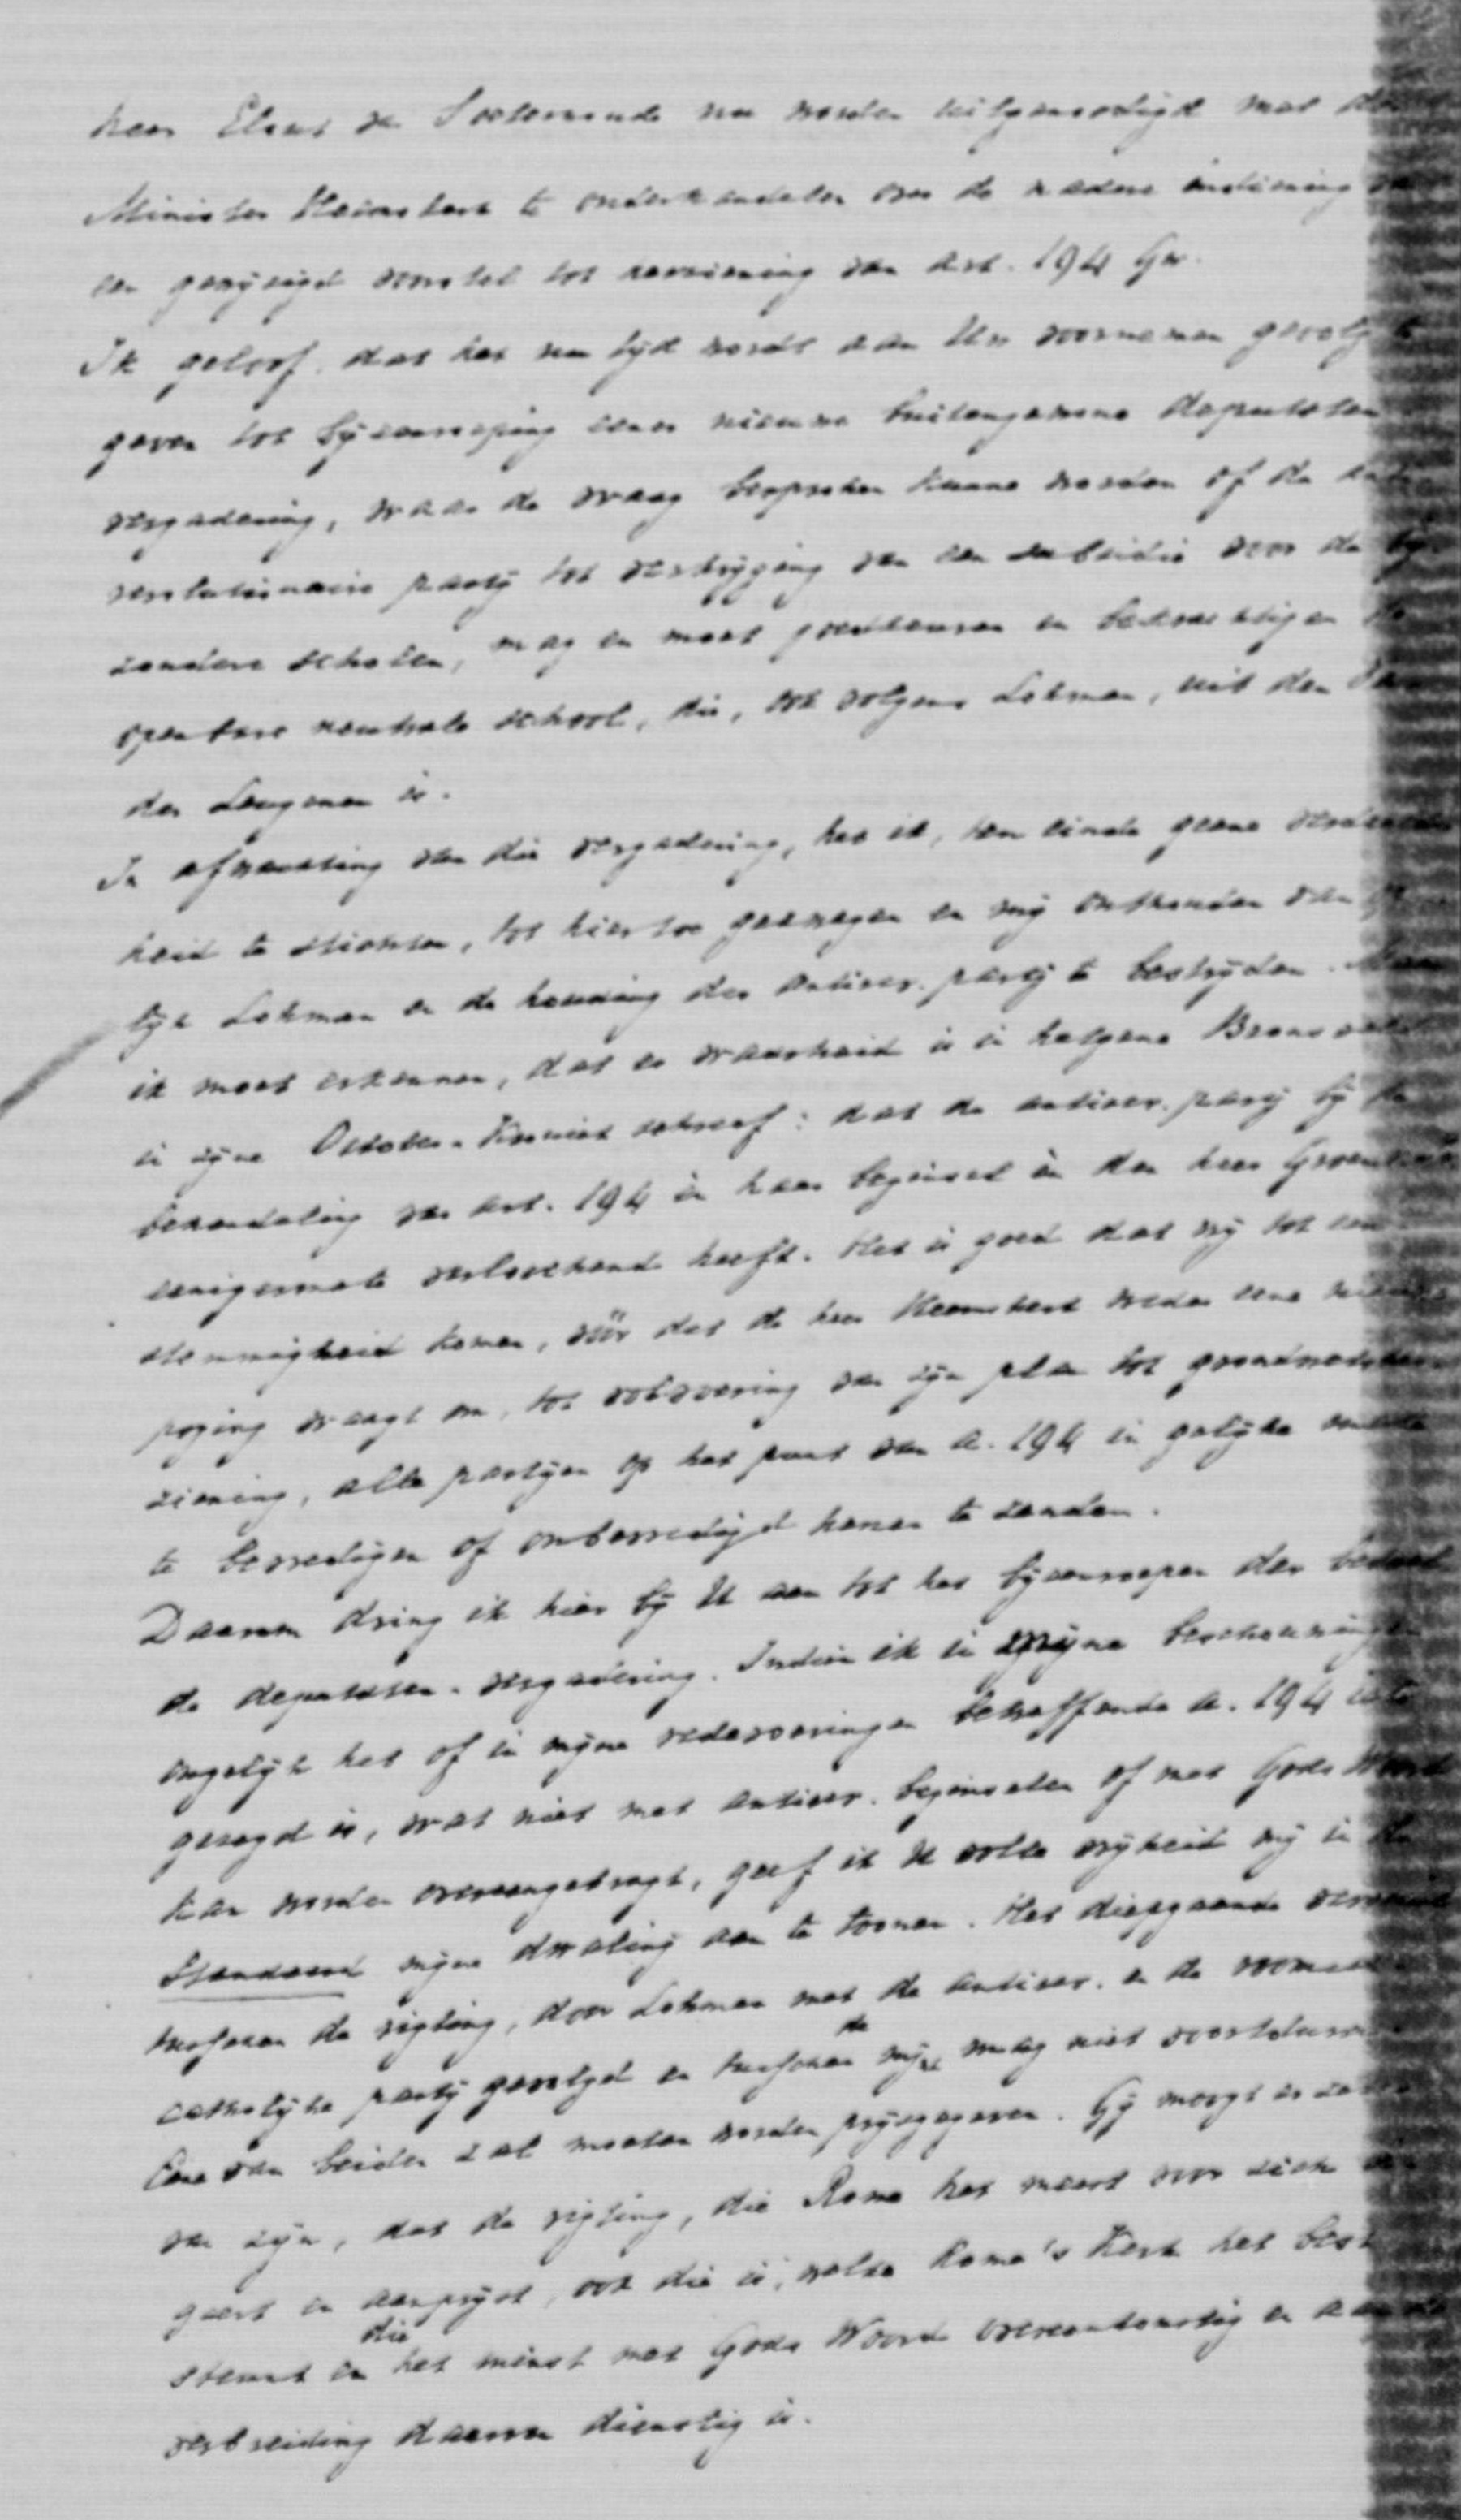 heer Elout de Soeterwoude nu worden uitgenoodigd met den
Minister Heemskerk te onderhandelen over de nadere indiening
een gewijzigd voorstel tot herziening van Art. 194 Gw.
Ik geloof, dat het nu tijd wordt aan Uw voornemen gevolg te
geven tot bijeenroeping eener nieuwe buitengewone deputaten
vergadering, waar de vraag besproken kunne worden of de anti
revolutionaire partij tot verkrijging van een subsidie voor de bij
zondere scholen, mag en moet goedkeuren en bekrachtigen de
openbare neutrale school, die, ook volgens Lohman, uit den
der Leugenen is.
In afwachting van die vergadering, heb ik, ten einde geene verdeeld
heid te stichten, tot hiertoe gezwegen en mij onthouden van
lijk Lohman en de houding der antirev. partij te bestrijden. Maar
ik moet erkennen, dat er waarheid is in hetgene Bronsveld
in zijne October-Kroniek schreef: dat de antirev. partij bij de
behandeling van art. 194 in haar beginsel en den heer Groen
eenigermate verloochend heeft. Het is goed dat wij tot een
stemmigheid komen, vóór dat de heer Heemskerk weder eene nieuwe
poging waagt om, tot uitvoering van zijn plan tot grondwetsher
ziening, alle partijen op het punt van a. 194 in gelijke mate
te bevredigen of onbevredigd henen te zenden.
Daarom dring ik hier bij U aan tot het bijeenroepen der bedoel
de deputaten-vergadering. Indien ik in mijne beschouwingen
ongelijk heb of in mijne redevoeringen betreffende a. 194 iets
gezegd is, wat niet met antirev. beginselen of met Gods Woord
kan worden overeengebragt, geef ik U volle vrijheid mij in de
Standaard mijne dwaling aan te toonen. Het diepgaande verschil
tusschen de rigting, door Lohman met de antirev. en de roomsch
catholijke partij gevolgd en tusschen de mijne, mag niet voortduren
Eene van beiden zal moeten worden prijsgegeven. Gij moogt er zeker
van zijn, dat de rigting, die Rome het meest voor zich
geert en aanprijst, ook die is, welke Rome's Kerk het best
steunt en die het minst met Gods Woord overeenkomstig en aan de
verbreiding daarvan dienstig is.